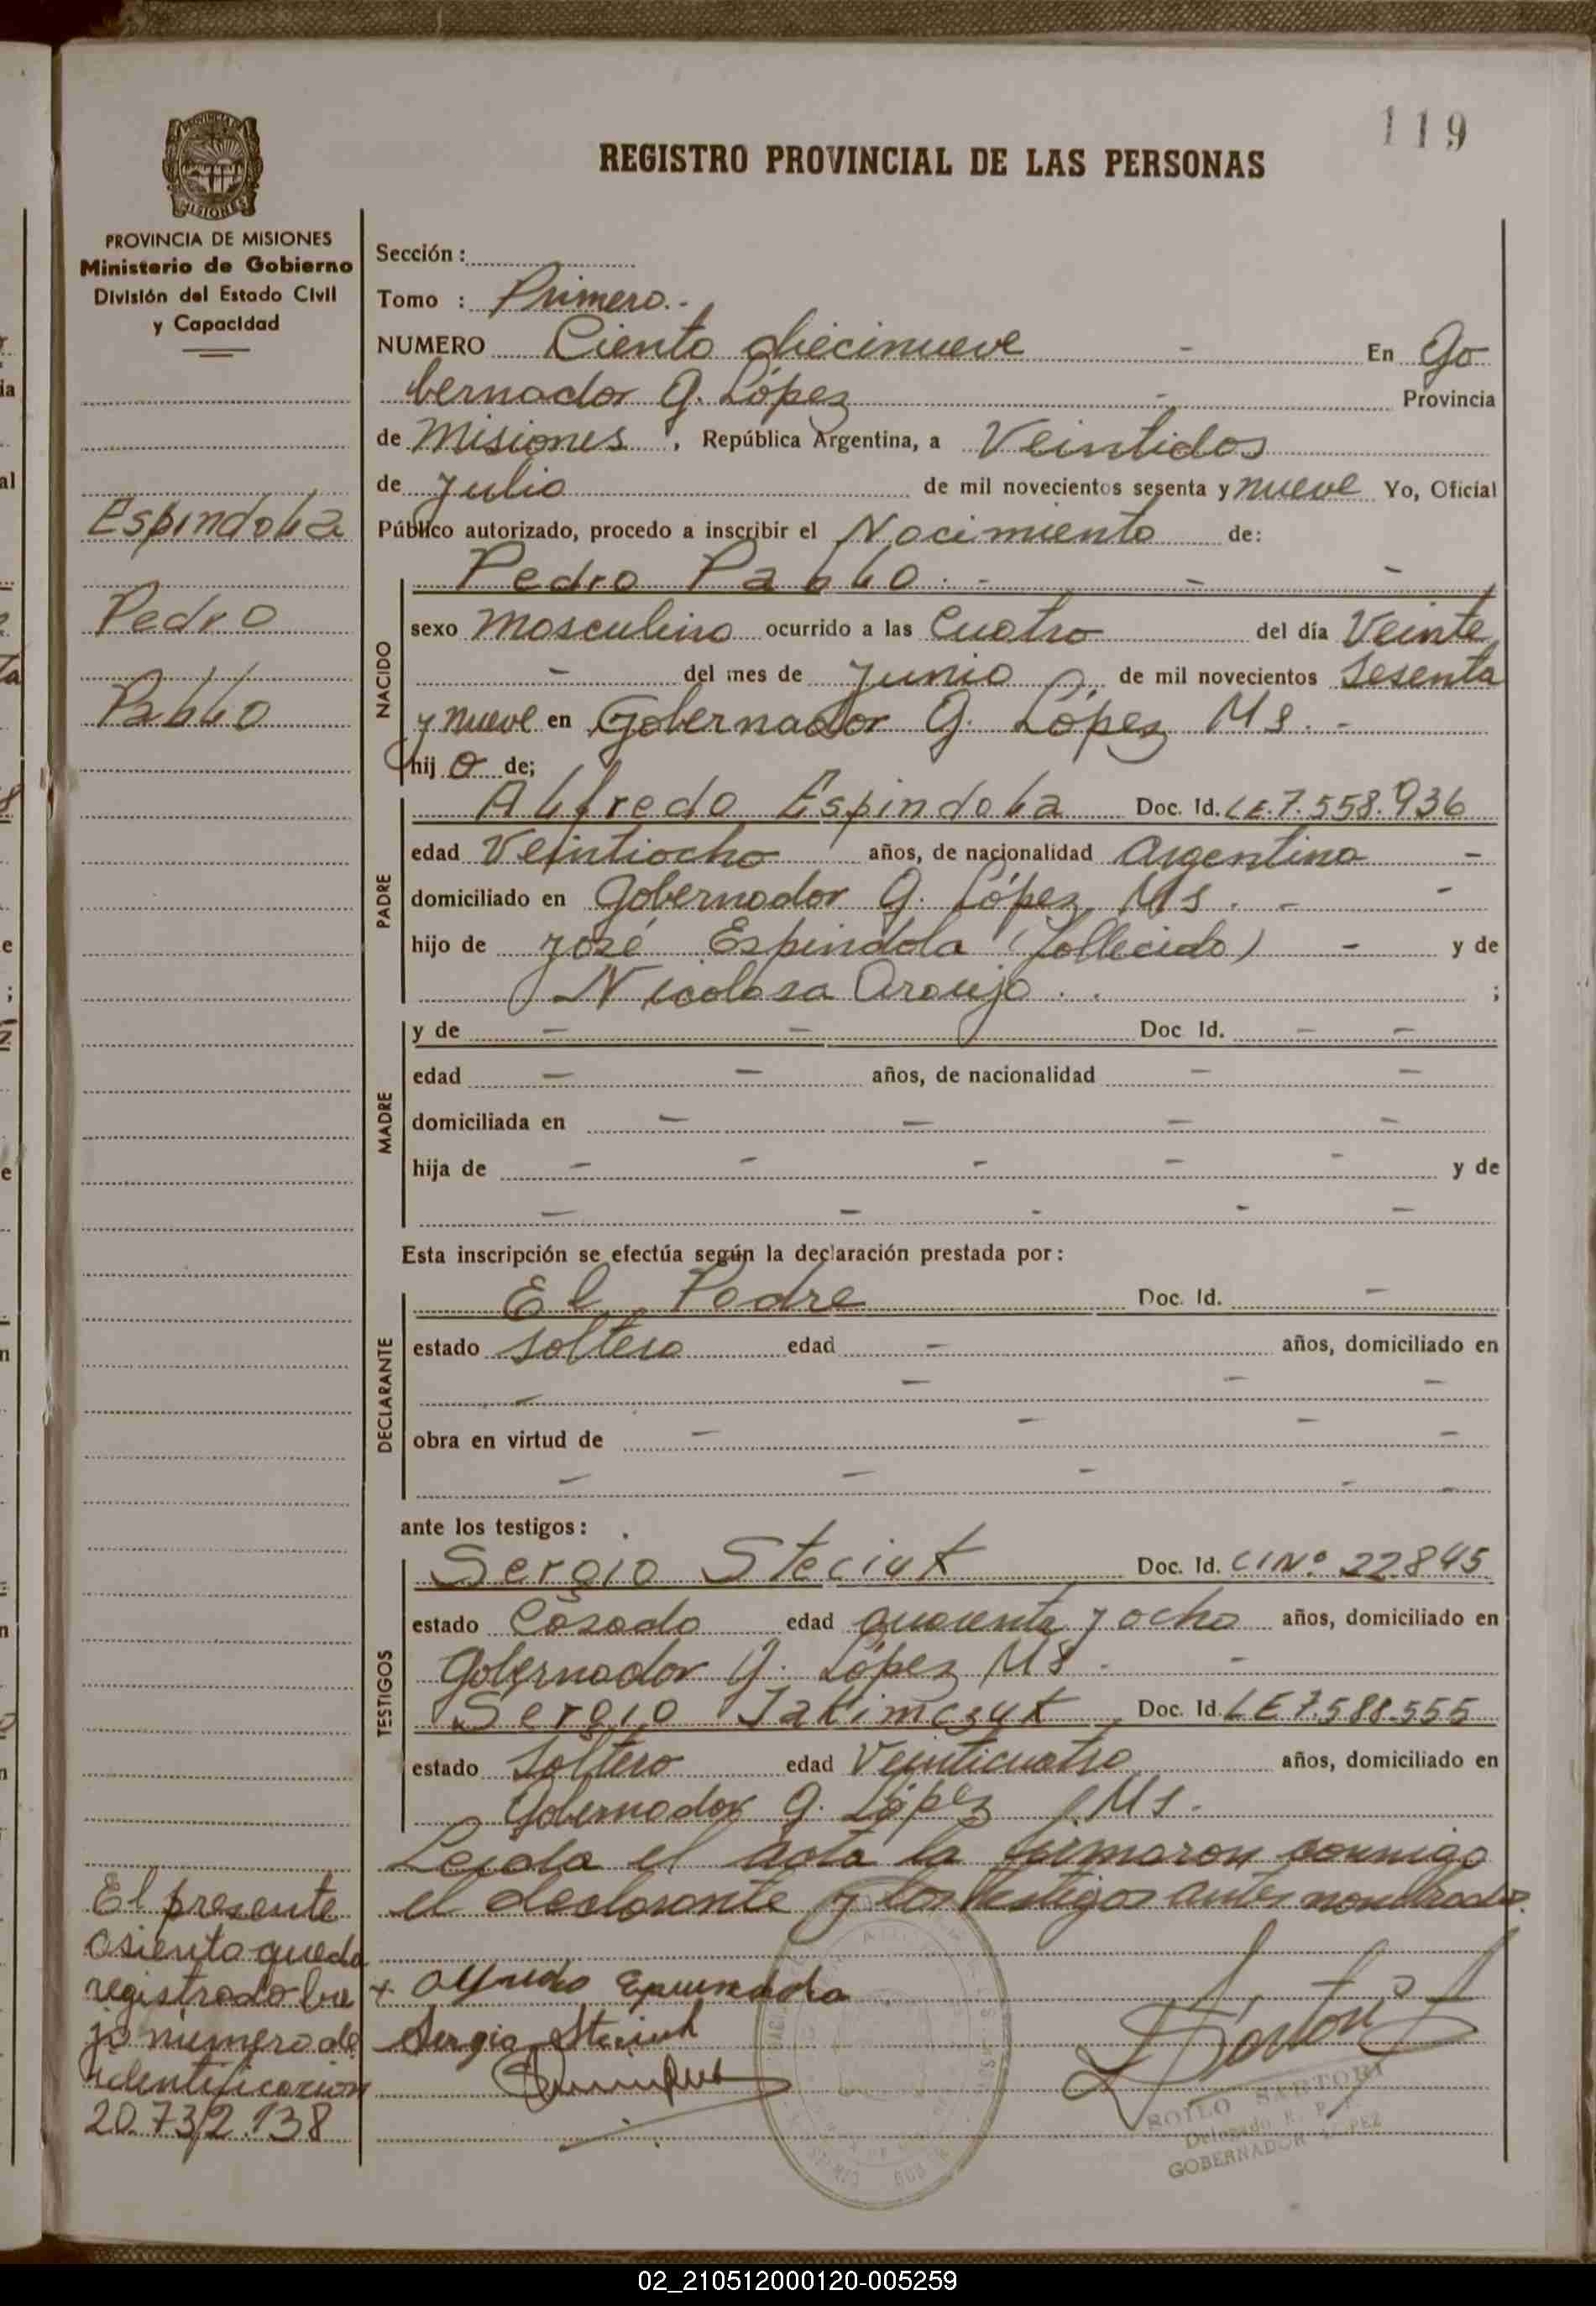 119
REGISTRO PROVINCIAL DE LAS PERSONAS
MISIONES
PROVINCIA DE MISIONES
Ministerio de Gobierno
División del Estado Civil
y Capacidad
Espindola
Pedro
Pablo
Sección :
Tomo : Primero.-
NUMERO Ciento diecinueve - En Go
bernador G. López - Provincia
de Misiones, República Argentina, a Veintidos
de Julio de mil novecientos sesenta y nueve Yo, Oficial
Público autorizado, procedo a inscribir el Nacimiento de:
Pedro Pablo.- - -
NACIDO
sexo Masculino ocurrido a las Cuatro del día Veinte
- del mes de Junio de mil novecientos Sesenta
y nueve en Gobernador G. López Ms.-
hijo de;
PADRE
Alfredo Espindola Doc. Id. LE.7.558.936
edad Veintiocho años, de nacionalidad Argentina -
domiciliado en Gobernador G. López Ms. - -
hijo de José Espindola (fallecido) - y de
Nicolasa Araujo . . ;
MADRE
y de - - Doc Id. - -
edad - - años, de nacionalidad - -
domiciliada en - - - -
hija de - - - - - y de
- - - - -
Esta inscripción se efectúa según la declaración prestada por:
DECLARANTE
El Padre Doc. Id. -
estado soltero edad - años, domiciliado en
- - - -
obra en virtud de - - - -
- - - - -
ante los testigos:
TESTIGOS
Sergio Steciuk Doc. Id. CINº 22845
estado Casado edad quarenta y ocho años, domiciliado en
Gobernador G. López Ms. -
Sergio Jakimczuk Doc. Id. LE 7.588.555
estado Soltero edad Veinticuatro años, domiciliado en
Gobernador G. López, Ms.
Leida el acta la firmaron conmigo
el declarante y los testigos antes nombrados.
El presente
asiento queda
registrado ba
jo numero de
identificacion
20.732.138
+ Alfredo Espindola
Sergio Steciuk
ROILO SARTORI
Delegado R. P. P.
GOBERNADOR LOPEZ
02_210512000120-005259